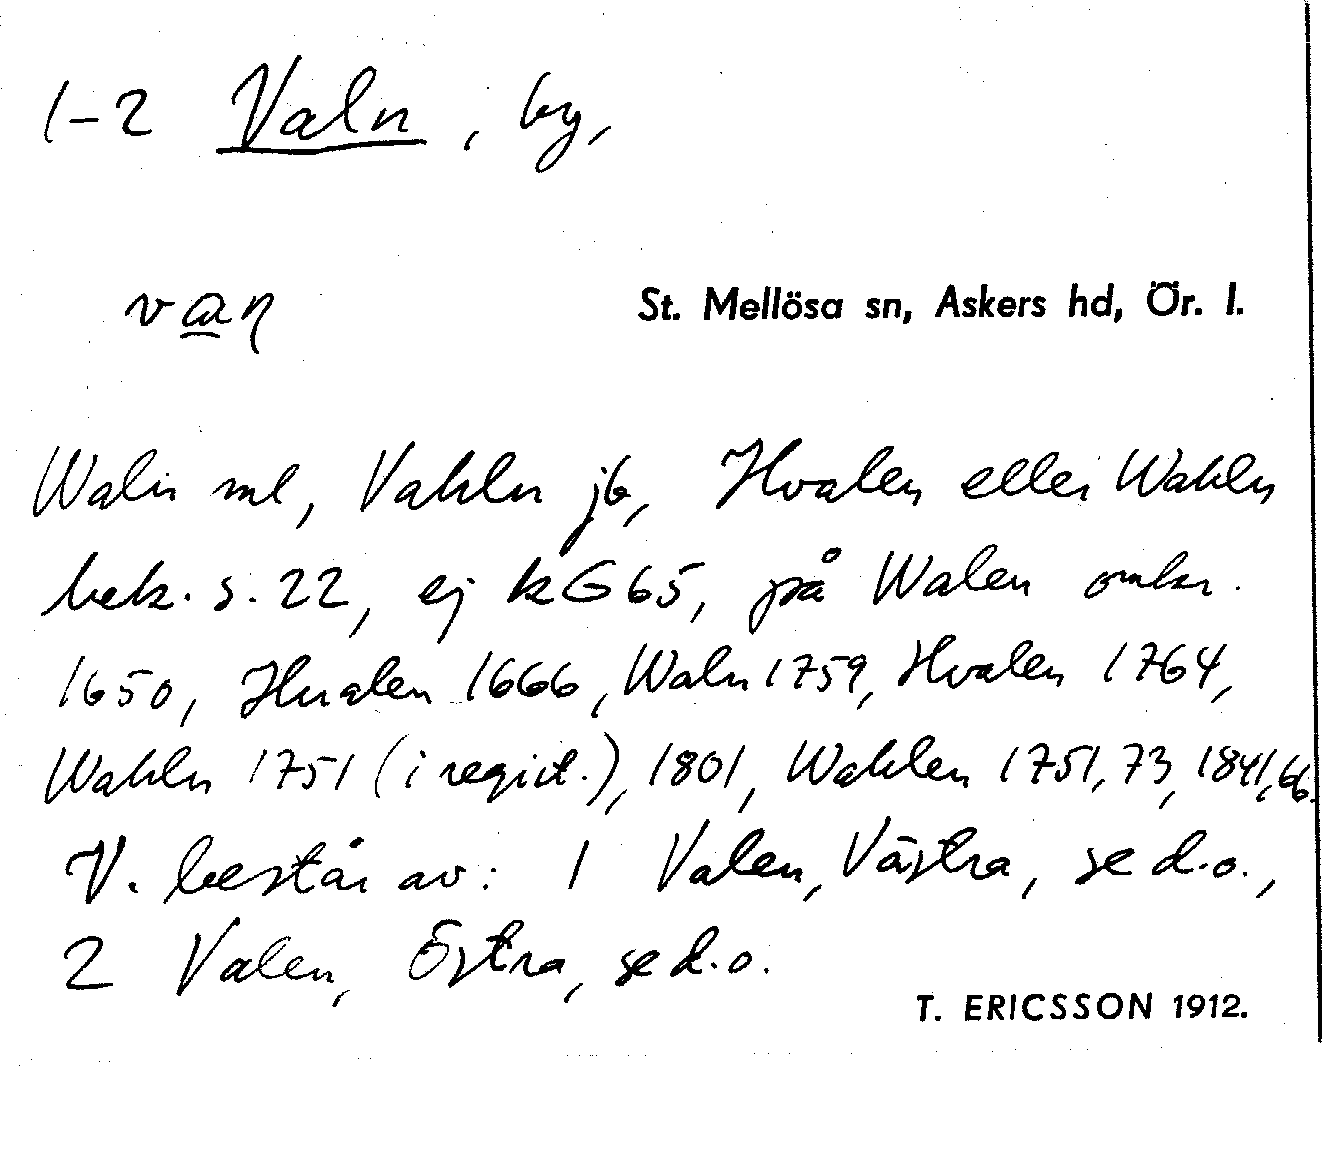 1-2 Valn, by,
van
St. Mellösa sn, Askers hd, Ör. l.
Waln ml, Vahln jb, Hvalen eller Wahln
bek. s. 22, ej KG65, på Walen omkr.
1650, Hualen 1666, Waln 1759, Hvalen 1764,
Wahln 1751 (i regist.), 1801, Wahlen 1751, 73, 1841, 66.
V. består av: 1 Valen, Västra, se d.o.,
2 Valen, Östra, se d.o.
T. ERICSSON 1912.